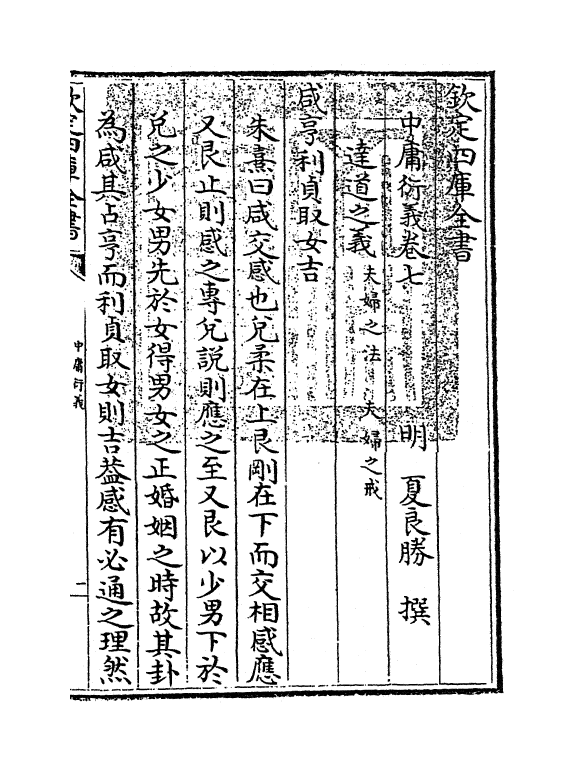 欽定四庫全書
中庸衍義卷七
明 夏良勝 撰
達道之義 夫婦之法 夫婦之戒
咸亨利貞取女吉
朱熹曰咸交感也兌柔在上艮剛在下而交相感應
又艮止則感之專兌說則應之至又艮以少男下於
兌之少女男先於女得男女之正婚姻之時故其卦
為咸其占亨而利貞取女則吉葢感有必通之理然
欽定四庫全書
中庸衍義
二